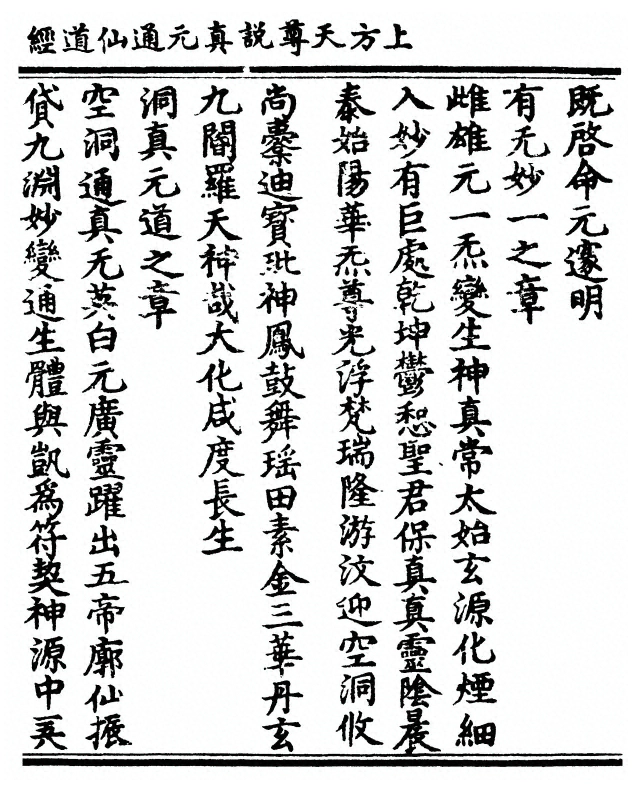 上方天尊説真元通仙道經
既啓命元邃明
有无妙一之章
雌雄元一炁變生神真常太始玄源化煙細
入妙有巨處乾坤鬱愸聖君保真真靈陰晨
泰始陽華炁尊光浮梵瑞隆游汶迎空洞攸
尚橐迪寶玭神鳳鼓舞瑶田素金三華丹玄
九閶羅天神哉大化咸度長生
洞真元道之章
空洞通真无英白元廣靈躍出五帝廓仙振
貸九淵妙變通生體與凱爲符契神源中英